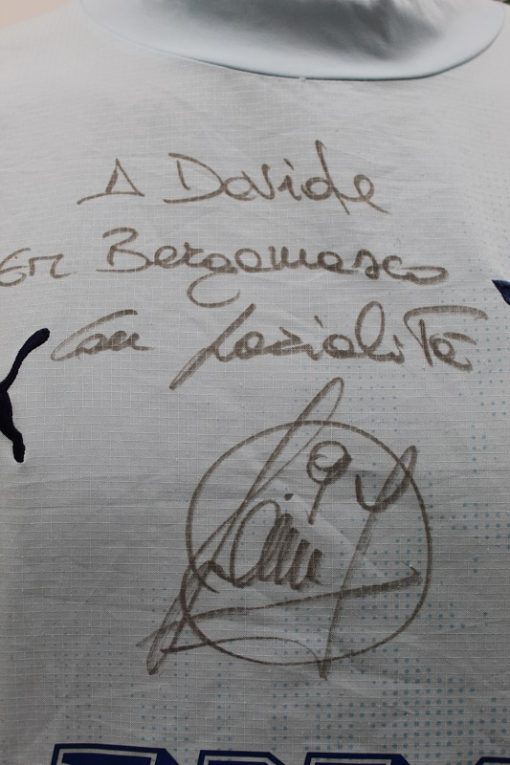 A Davide
er Bergamasco
Con sozialità